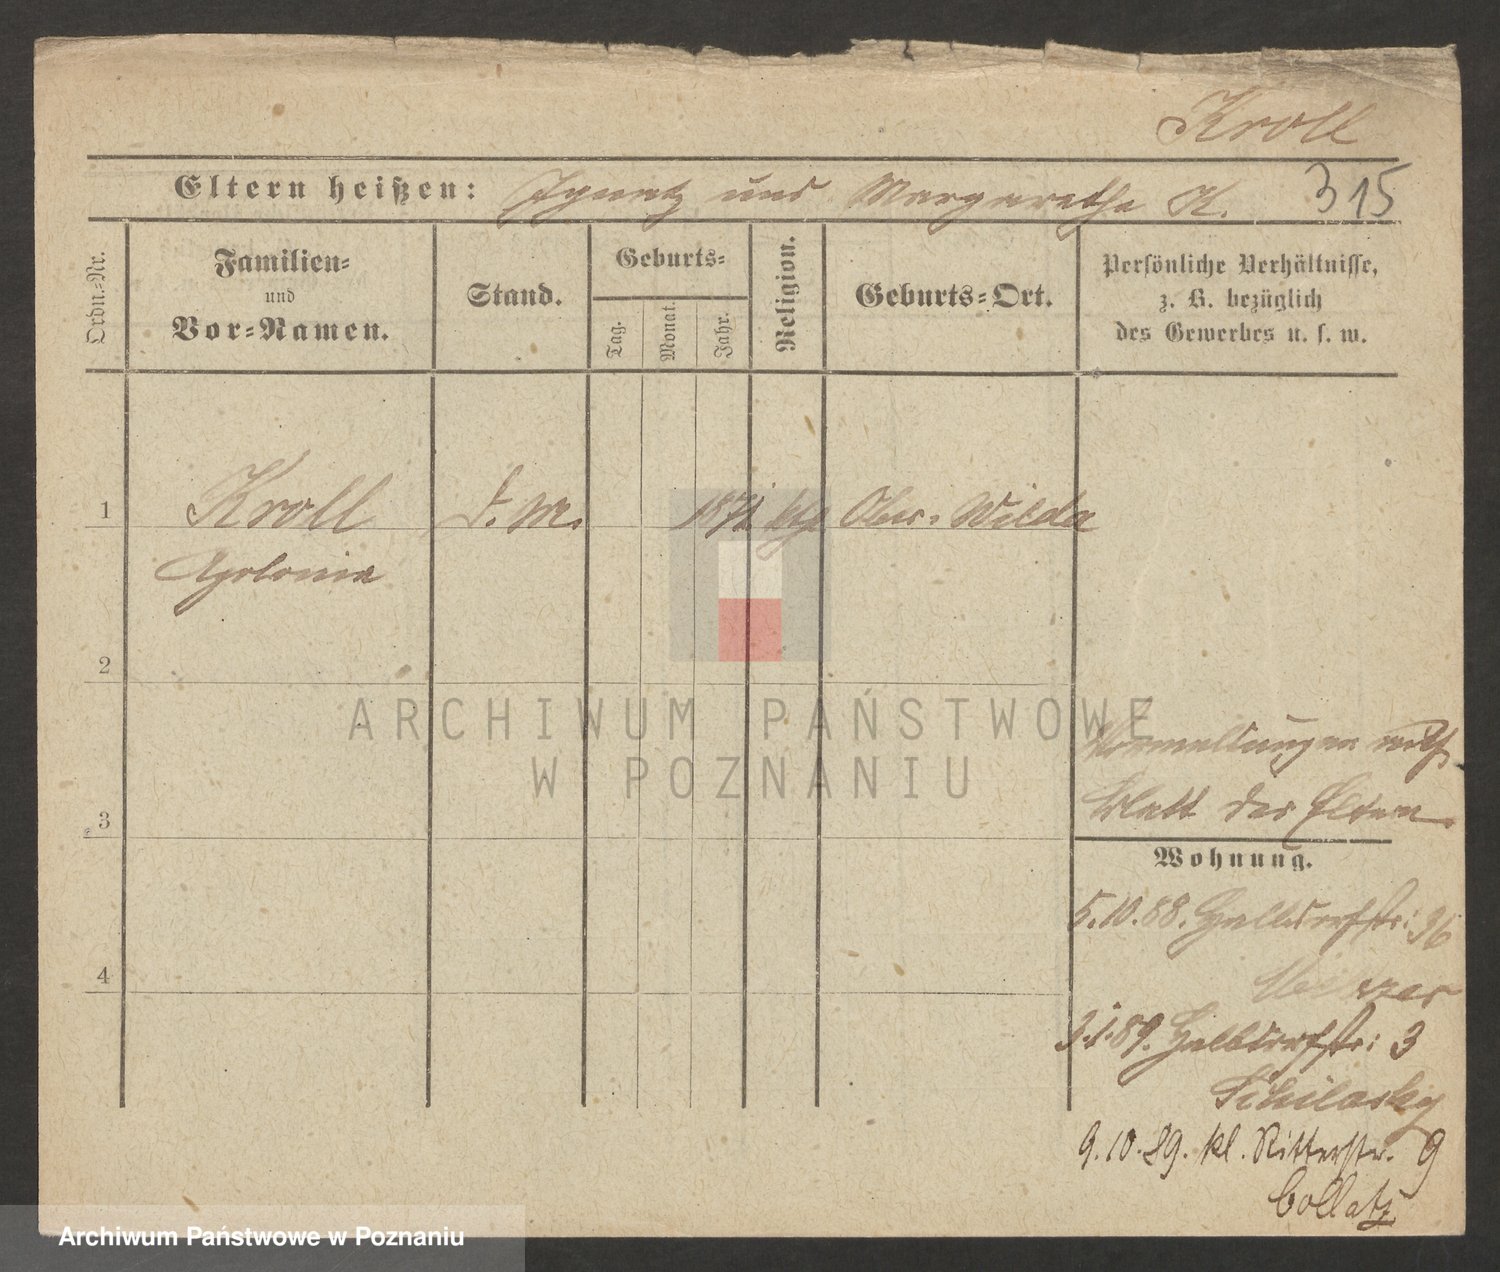 Kroll
Eltern heißen: Ignatz und Margarethe K. 315
Ordn.-Nr.
Familien-
und
Vor-Namen.
Stand.
Geburts-
Tag.
Monat.
Jahr.
Religion.
Geburts-Ort.
Persönliche Verhältnisse,
z. B. bezüglich
des Gewerbes u. s. w.
1 Kroll D. M. 1871 kth Ober-Wilda
Apolonia
2
ARCHIWUM PAŃSTWOWE
W POZNANIU
Vormeldungen
Blatt der Eltern.
3
Wohnung.
5.10.88. Halbdorfstr: 36
4
3.1.89. Halbdorfstr: 3
9.10.89. kl. Ritterstr. 9
Collatz
Archiwum Państwowe w Poznaniu